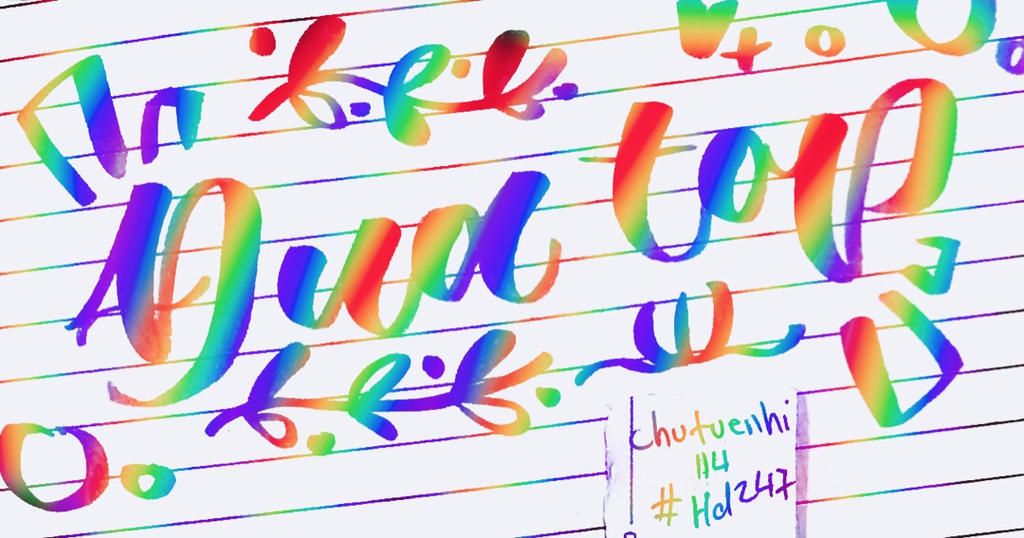 Đua top
chutuenhi
114
# Hd247